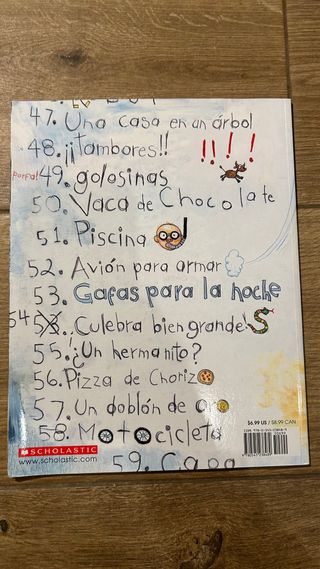 47. Una casa en un árbol
48. ¡¡tambores!!
porfa! 49. golosinas
50. Vaca de Chocolate
51. Piscina
52. Avión para armar
53. Gafas para la noche
54 53. Culebra bien grande
55. ¿Un hermanito?
56. Pizza de Chorizo
57. Un doblón de oro
58. Motocicleta
$6.99 US / $8.99 CAN
SCHOLASTIC
www.scholastic.com
59. Capa